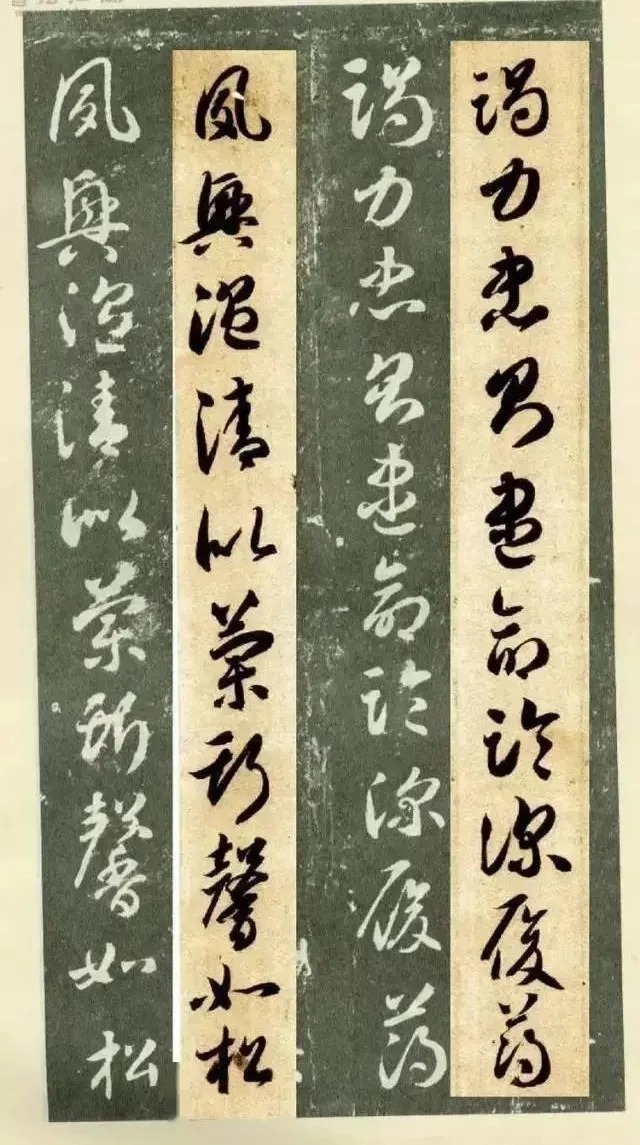 竭力忠則盡命臨深履薄
竭力忠則盡命臨深履薄
夙興溫清似蘭斯馨如松
夙興溫清似蘭斯馨如松